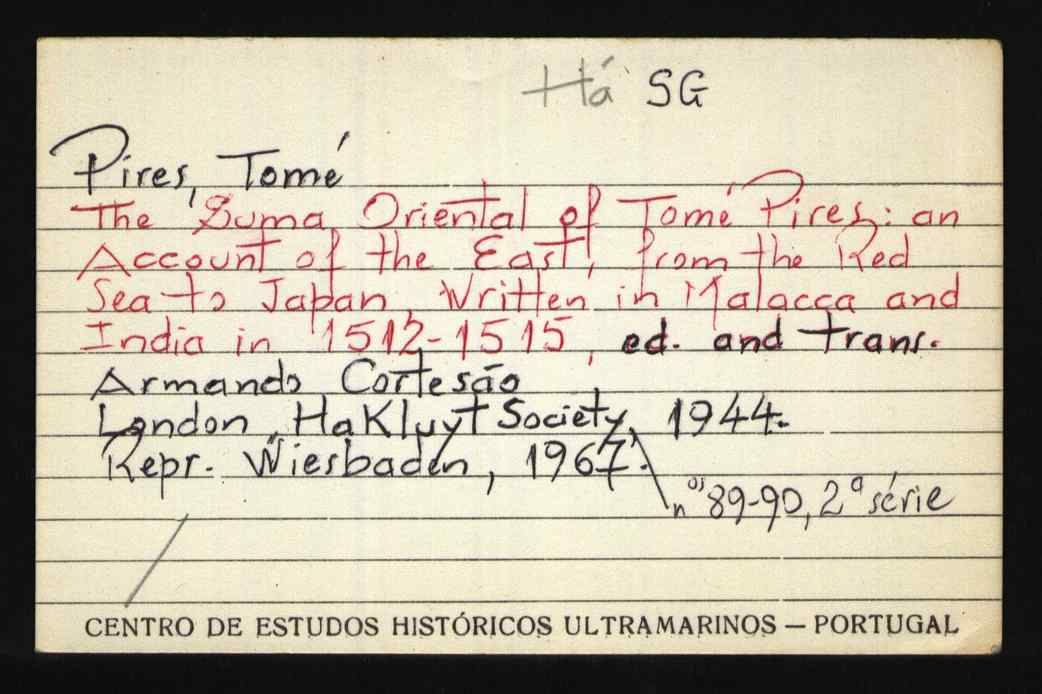 Há SG
Pires, Tomé
The Suma Oriental of Tomé Pires: an
Account of the East, from the Red
Sea to Japan, Written in Malacca and
India in 1512-1515, ed. and trans.
Armando Cortesão
London, Hakluyt Society, 1944.
Repr. Wiesbaden, 1967.
nos 89-90, 2a série
CENTRO DE ESTUDOS HISTÓRICOS ULTRAMARINOS — PORTUGAL